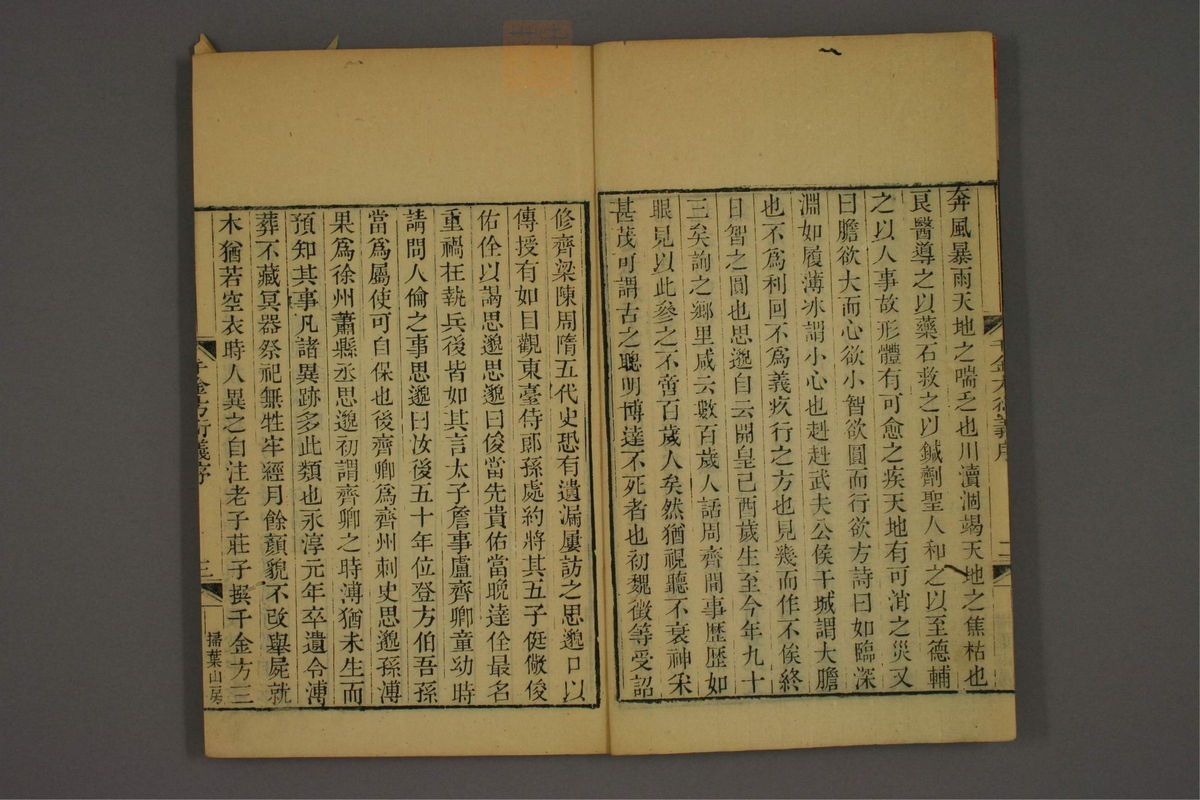 奔風暴雨天地之喘乏也川瀆涸竭天地之焦枯也
良醫導之以藥石救之以鍼劑聖人和之以至德輔
之以人事故形體有可愈之疾天地有可消之災又
曰膽欲大而心欲小智欲圓而行欲方詩曰如臨深
淵如履薄冰謂小心也赳赳武夫公侯干城謂大膽
也不為利回不為義疚行之方也見幾而作不俟終
日智之圓也思邈自云開皇己酉歲生至今年九十
三矣詢之鄉里咸云數百歲人話周齊間事歷歷如
眼見以此參之不啻百歲人矣然猶視聽不衰神采
甚茂可謂古之聰明博達不死者也初魏徵等受詔
修齊梁陳周隋五代史恐有遺漏屢訪之思邈口以
傳授有如目觀東臺侍郎孫處約將其五子侹儆俊
佑佺以謁思邈思邈曰俊當先貴佑當晚達佺最名
重禍在執兵後皆如其言太子詹事盧齊卿童幼時
請問人倫之事思邈曰汝後五十年位登方伯吾孫
當爲屬使可自保也後齊卿爲齊州刺史思邈孫溥
果爲徐州蕭縣丞思邈初謂齊卿之時溥猶未生而
預知其事凡諸異跡多此類也永淳元年卒遺令薄
葬不藏冥器祭祀無牲牢經月餘顏貌不改舉屍就
木猶若空衣時人異之自注老子莊子撰千金方三
千金方衍義序
三
掃葉山房